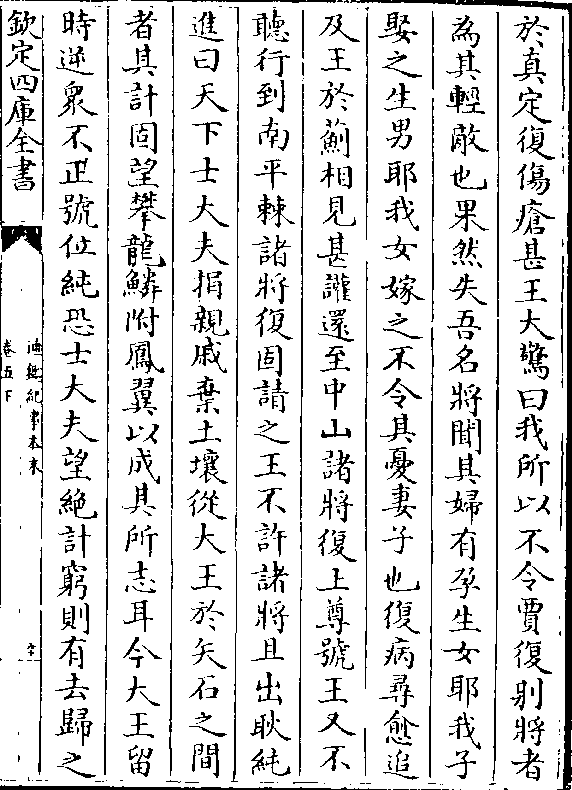 於真定復傷瘡甚王大驚曰我所以不令賈復别將者
為其輕敵也果然失吾名將聞其婦有孕生女耶我子
娶之生男耶我女嫁之不令其憂妻子也復病尋愈追
及王於薊相見甚讙還至中山諸將復上尊號王又不
聽行到南平棘諸將復固請之王不許諸將且出耿純
進曰天下士大夫捐親戚棄土壤從大王於矢石之間
者其計固望攀龍鱗附鳳翼以成其所志耳今大王留
時逆衆不正號位純恐士大夫望絶計窮則有去歸之
欽定四庫全書
紀事本末
卷五下